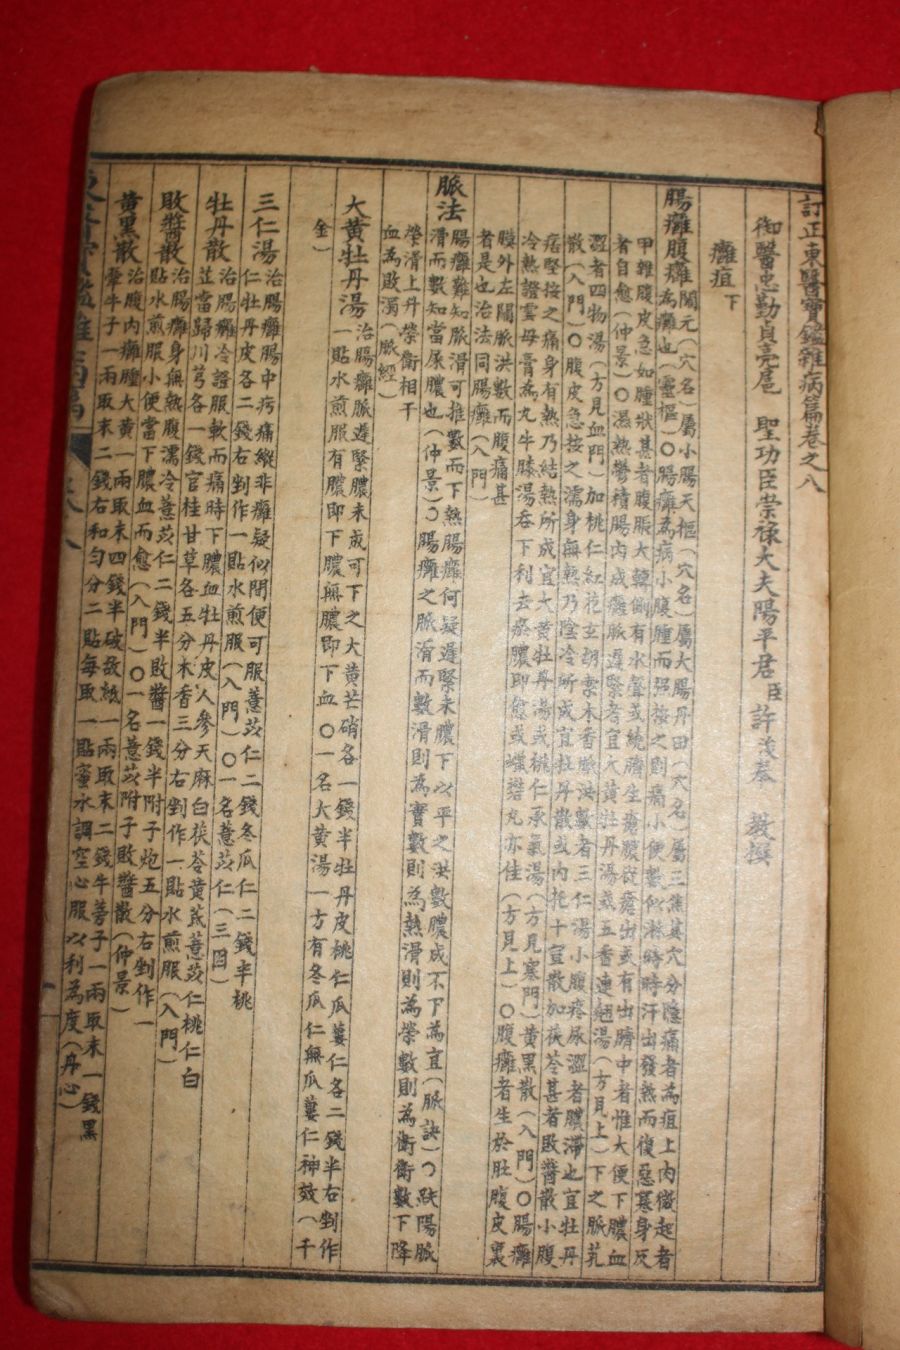 訂正東醫寶鑑雜病篇卷之八
御醫忠勤貞亮扈 聖功臣崇祿大夫陽平君臣許浚奉 敎撰
癰疽下
腸癰腹癰 關元(穴名)屬小腸天樞(穴名)屬大腸丹田(穴名)屬三焦其穴分隱痛者為疽上肉微起者
為癰也(靈樞)○腸癰為病小腹腫而强按之則痛小便數似淋時時汗出發熱而復惡寒身皮
甲錯腹皮急如腫狀甚者腹脹大轉側有水聲或繞臍生瘡膿從瘡出或有出臍中者惟大便下膿血
者自愈(仲景)○濕熱鬱積腸內成癰脈遲緊者宜大黃牡丹湯或五香連翹湯(方見上)下之脈芤
澀者四物湯(方見血門)加桃仁紅花玄胡索木香脈洪數者三仁湯小腹疼尿澀者膿滯也宜牡丹
散(入門)○腹皮急按之濡身無熱乃陰冷所成宜牡丹散或內托十宣散加茯苓甚者敗醬散小腹
痞堅按之痛身有熱乃結熱所成宜大黃牡丹湯或桃仁承氣湯(方見寒門)黃黑散(入門)○腸癰
冷熱證雲母膏為丸牛膝湯吞下利去瘀膿即愈或蠟礬丸亦佳(方見上)○腹癰者生於肚腹皮裏
膜外左關脈洪數而腹痛甚
者是也治法同腸癰(入門)
脈法 腸癰難知脈滑可推數而下熱腸癰何疑遲緊未膿下以平之洪數膿成不下為宜(脈訣)○趺陽脈
滑而數知當尿膿也(仲景)○腸癰之脈滑而數滑則為實數則為熱滑則為榮數則為衛衛數下降
榮滑上升榮衛相干
血為敗濁(脈經)
大黃牡丹湯 治腸癰脈遲緊膿未成可下之大黃芒硝各一錢半牡丹皮桃仁瓜蔞仁各二錢半右剉作
一貼水煎服有膿即下膿無膿即下血○一名大黃湯一方有冬瓜仁無瓜蔞仁神效(千
金)
三仁湯 治腸癰腸中㽲痛縱非癰疑似間便可服薏苡仁二錢冬瓜仁二錢半桃
仁牡丹皮各二錢右剉作一貼水煎服(入門)○一名薏苡仁(三因)
牡丹散 治腸癰冷證服軟而痛時下膿血牡丹皮人參天麻白茯苓黃芪薏苡仁桃仁白
芷當歸川芎各一錢官桂甘草各五分木香三分右剉作一貼水煎服(入門)
敗醬散 治腸癰身無熱腹濡冷薏苡仁二錢半敗醬一錢半附子炮五分右剉作一
貼水煎服小便當下膿血而愈(入門)○一名薏苡附子敗醬散(仲景)
黃黑散 治腹內癰腫大黃一兩取末四錢半破故紙一兩取末二錢牛蒡子一兩取末一錢黑
牽牛子一兩取末二錢右和勻分二貼每取一貼蜜水調空心服以利為度(丹心)